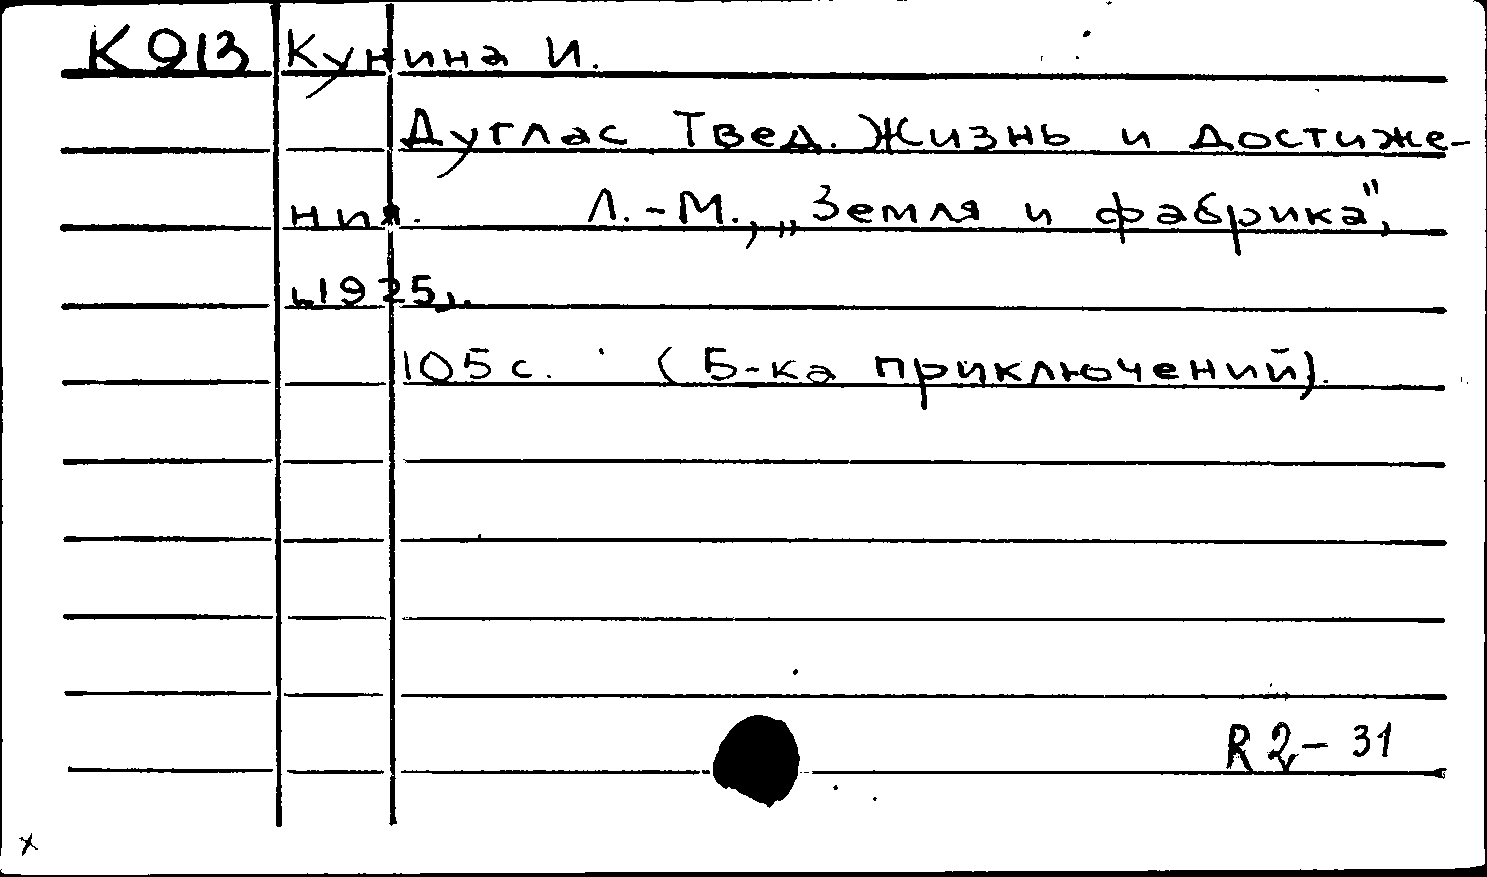 К913 Кунина И.
Дуглас Твед. Жизнь и достиже-
ния. Л.-М., „Земля и фабрика",
[1925].
105 с. (Б-ка приключений).
R2-31
x